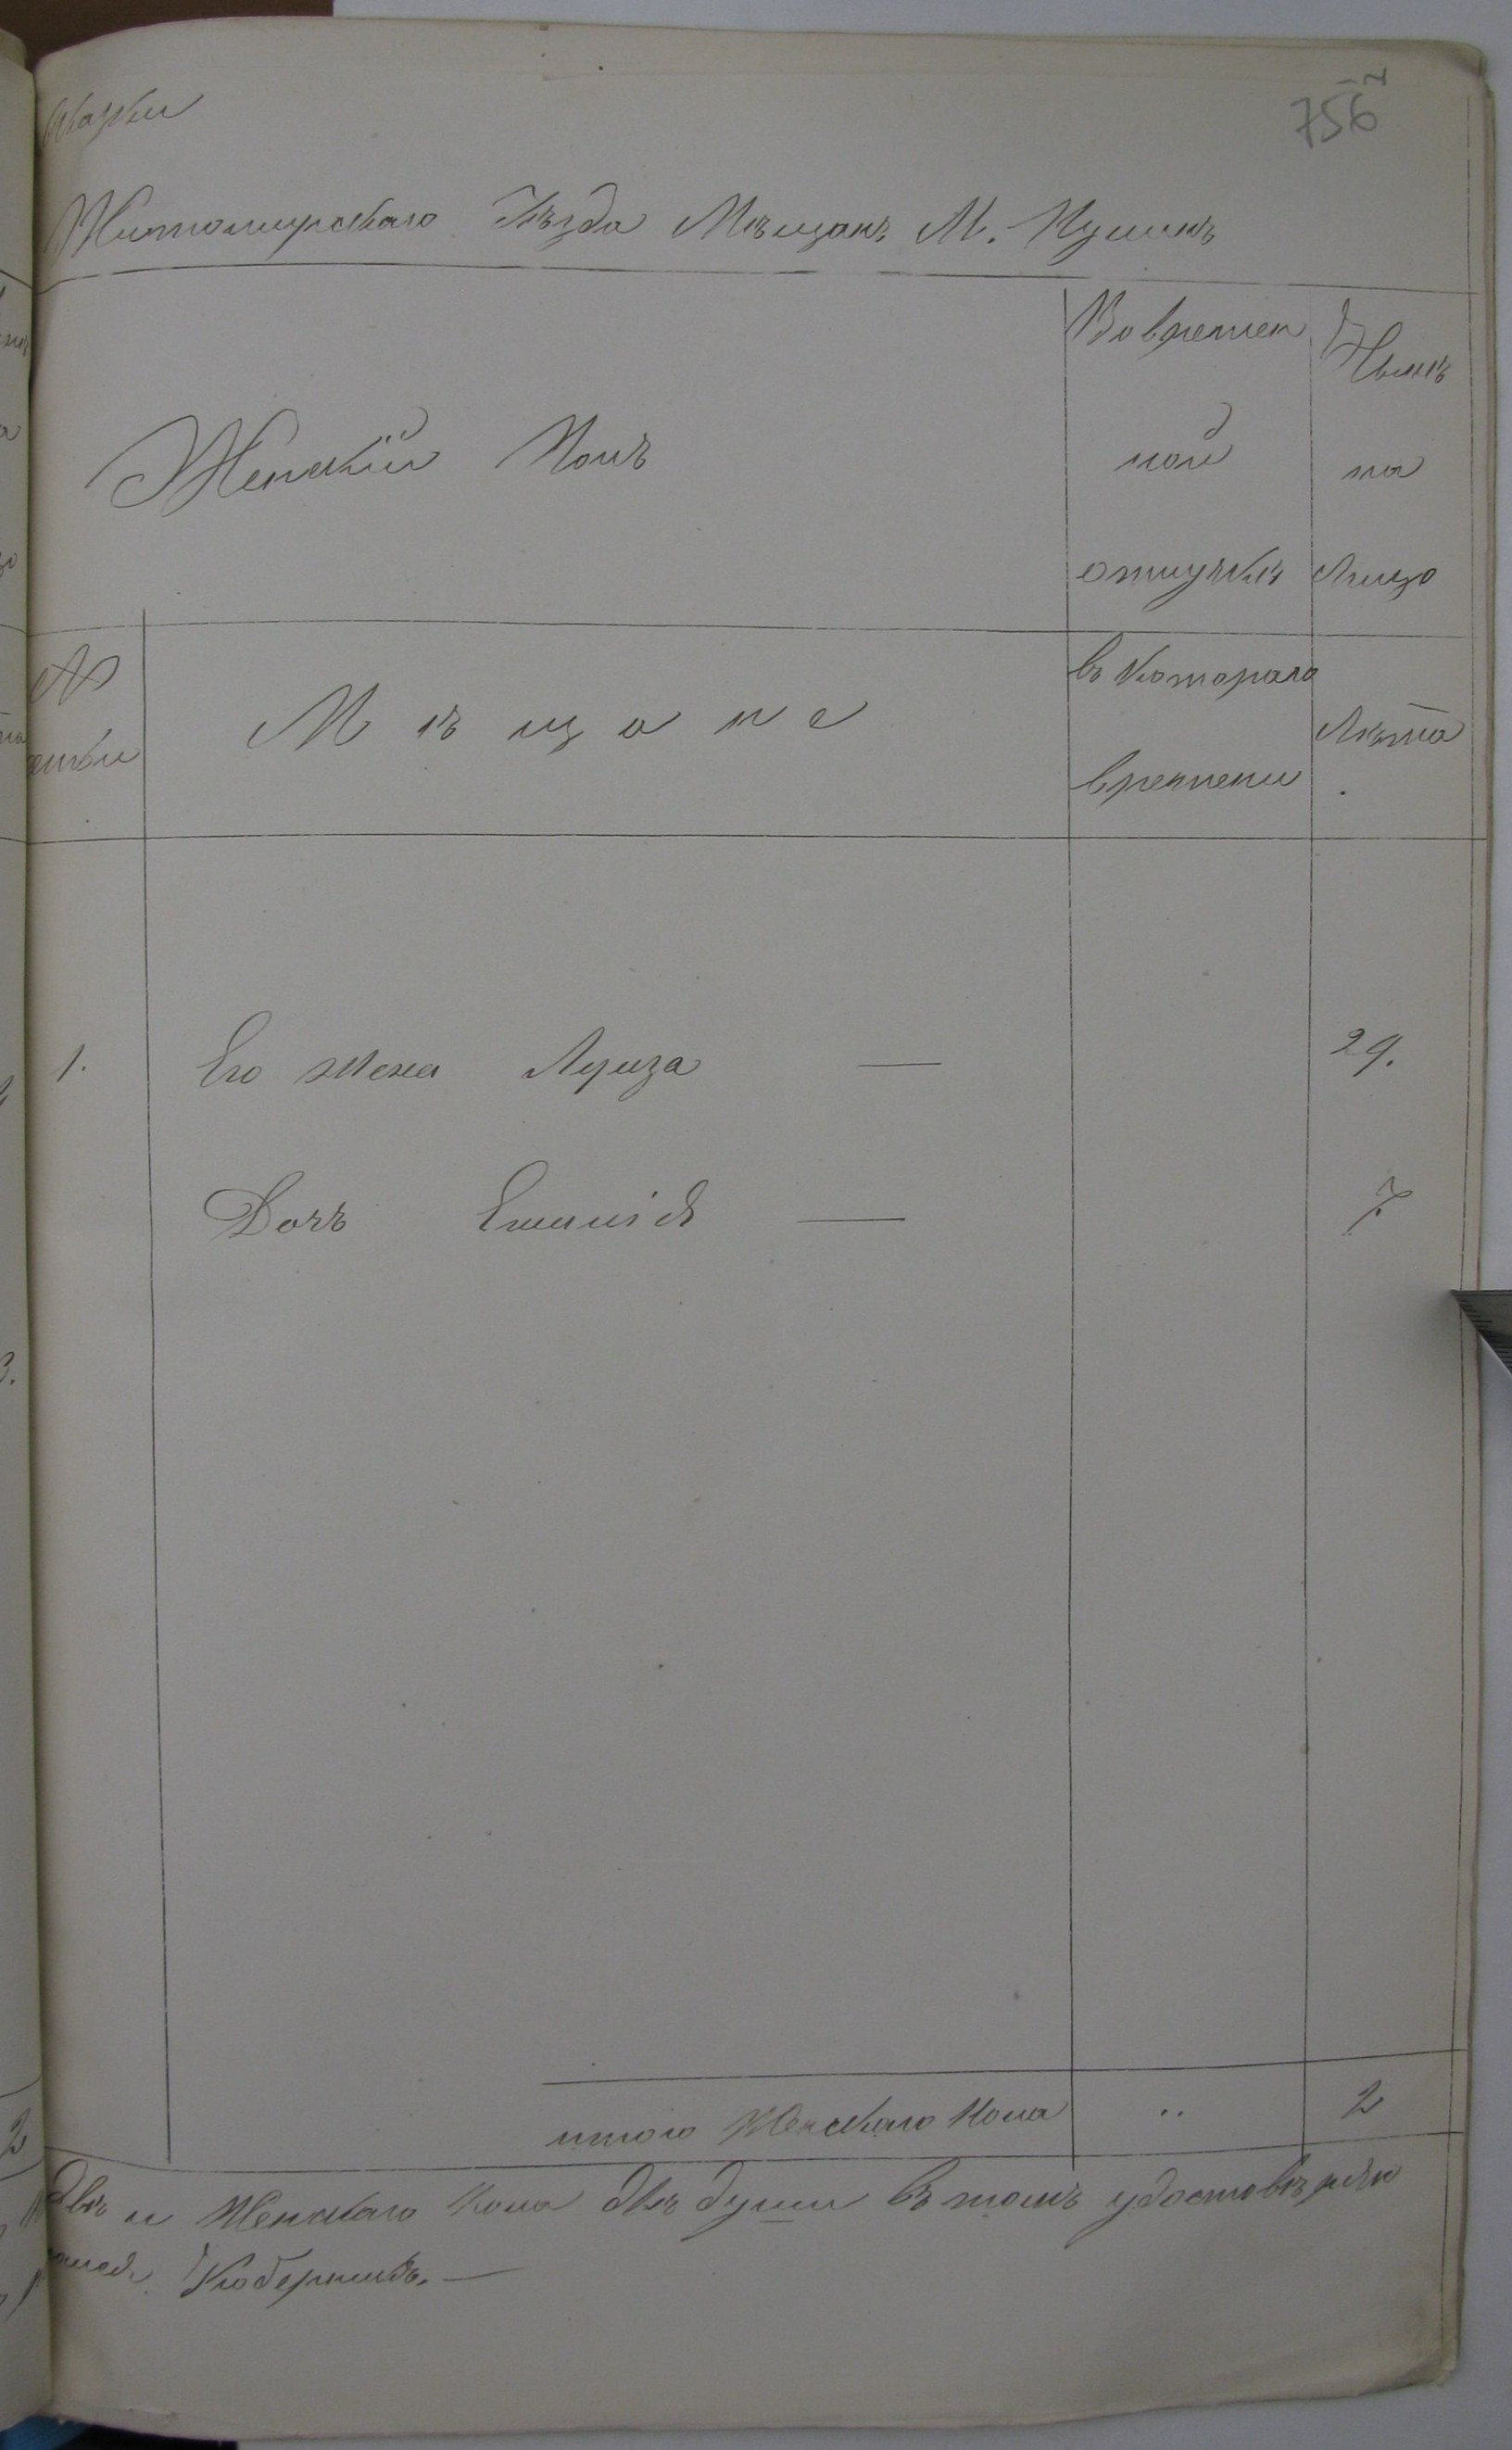 сказки
756
Житомирскаго Уѣзда Мѣщанъ М.
Женскій Полъ
Во времен
ной
отлучкѣ
Нынѣ
на
Лицо
№
семьи
Мѣщане
въ Котораго
времени
Лѣта
1. Его жена Луиза — 29.
Дочь Емилія — 7.
итого Женскаго Пола .. 2
двѣ и Женскаго пола двѣ души въ томъ удостовѣряю